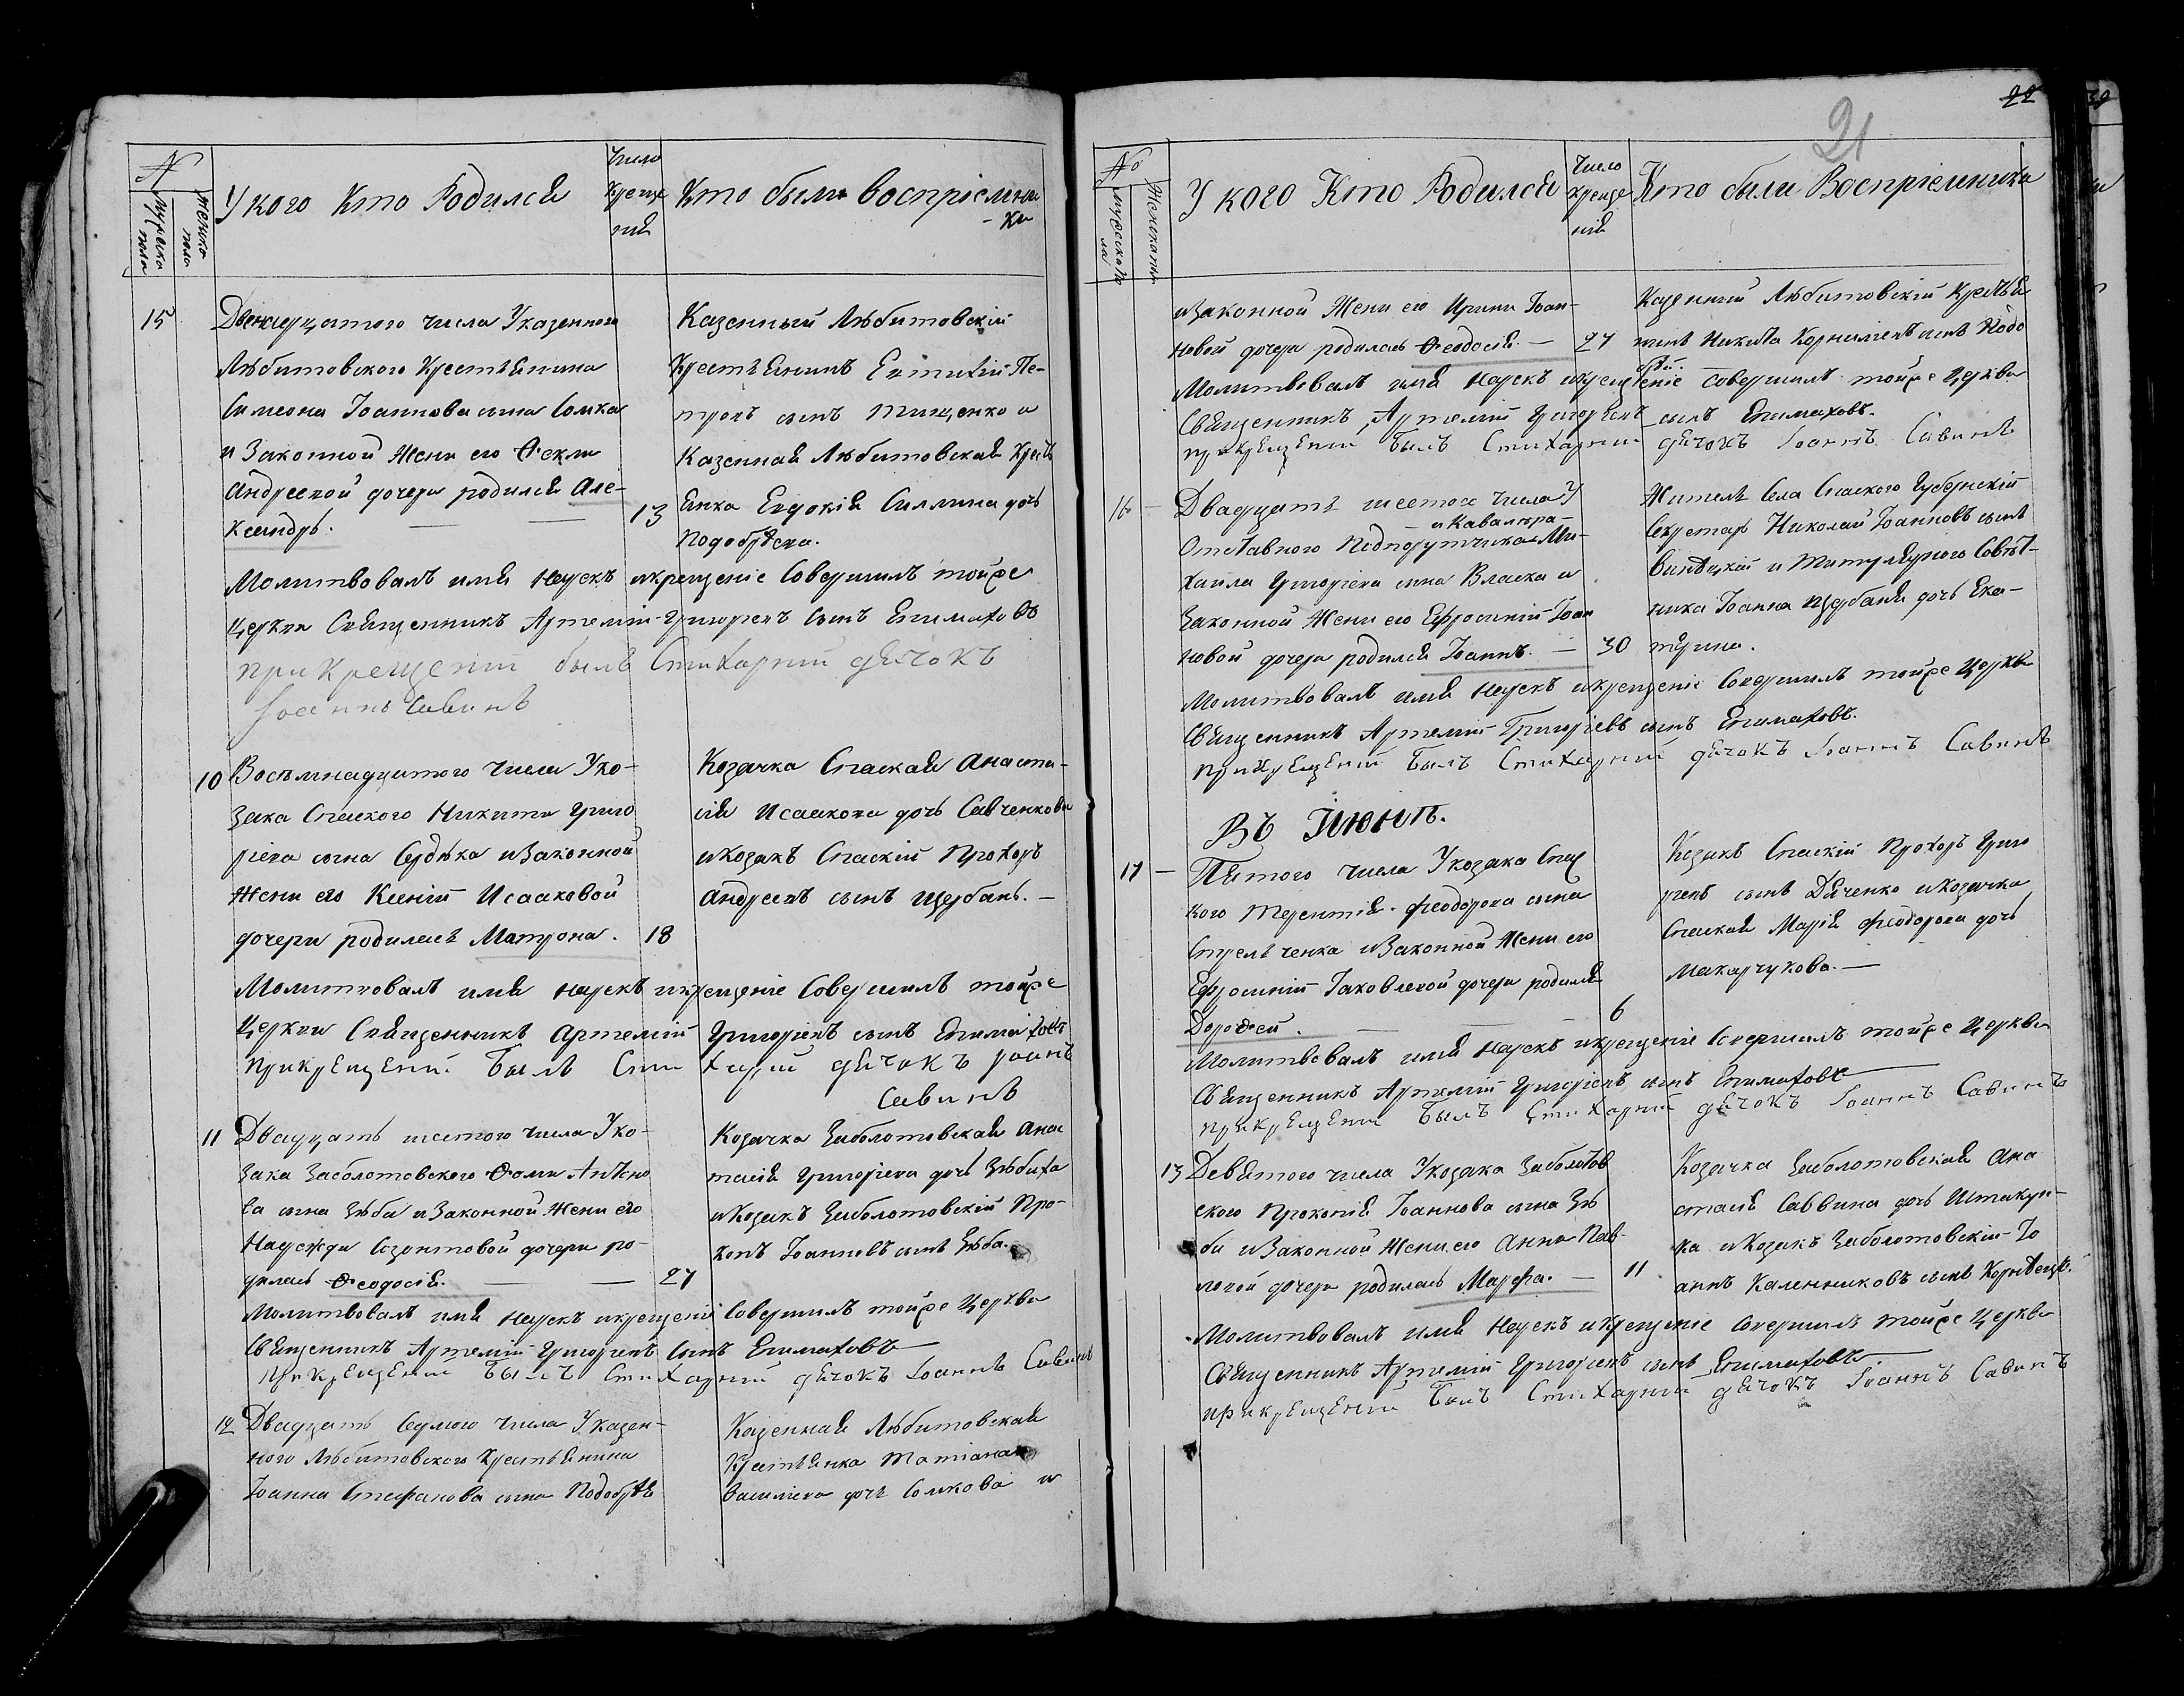 №
Мужеска пола
Женска пола
У кого Кто Родился
Число Крещенія
Кто были воспріемни-
ки
15
Двенадцатого числа У казенного
Любитовского Крестьянина
Симеона Іоаннова сына Сомка
и Законной Жени его Ѳекли
Андреевой дочери родился Але-
ксандръ.
13
Казенный Любитовскій
Крестьянинъ Евтихій Пе-
тровъ сынъ Тищенко и
Казенная Любитовская Крест
янка Евдокія Силлина дочь
Подобрѣева.
Молитвовалъ имя Нарекъ и крещеніе Совершилъ тойже
Церкви Священникъ Артемій Григоріевъ сынъ Епимаховъ
при Крещеніи былъ Стихарній дячокъ
Іоаннъ Савинъ
10
Восѣмнадцатого числа У ко-
зака Спаского Никити Григо
ріева сына Сердюка и Законной
Жени его Ксеніи Исааковой
дочери родилась Матрона.
18
Козачка Спаская Анаста-
сія Исаакова дочь Савченкова
и Козакъ Спаскій Прохоръ
Андреевъ сынъ Щербань.
Молитвовалъ имя Нарекъ и крещеніе Совершилъ тойже
Церкви Священникъ Артемій Григоріевъ сынъ Епимаховъ
При Крещеніи Былъ Стихарній дячокъ Іоанъ
Савинъ
11
Двадцать шестого числа У ко-
зака Заболотовского Ѳоми Антоно
ва сына Зюби и Законной Жени его
Надежди Созонтовой дочери ро-
дилась Ѳеодосія.
27
Козачка Заболотовская Анас
тасія Григоріева дочь Зюбиха
и Козакъ Заболотовскій Про-
копъ Іоанновъ сынъ Зюба.
Молитвовалъ имя Нарекъ и крещеніе Совершилъ тойже Церкви
Священникъ Артемій Григоріевъ сынъ Епимаховъ
При Крещеніи Былъ Стихарній дячокъ Іоаннъ Савинъ
12
Двадцать Седмого числа У казен-
ного Любитовского Крестьянина
Іоанна Стефанова сына Подобрѣя
Казенная Любитовская
Крестьянка Татіана
Василіева дочь Сомкова и
22
21
№
Мужеска по
ла
Женска пола
У кого Кто Родился
Число Крещенія
Кто были Воспріемники
и Законной Жени его Ирини Іоан-
новой дочери родилась Ѳеодосія.
27
Казенный Любитовскій Крестья
нинъ Никита Корниліевъ сынъ Подо
брій.
Молитвовалъ имя Нарекъ и крещеніе Совершилъ тойже Церкви
Священникъ Артемій Григоріевъ сынъ Епимаховъ.
При Крещеніи Былъ Стихарній дячокъ Іоаннъ Савинъ
16
Двадцать шестого Числа У
и Кавалера
Отставного Подпорутчика Ми-
хаила Григоріева сына Власка и
Законной Жени его Ефросиніи Іоан
новой дочери родился Іоаннъ.
30
Житель Села Спаского Губернскій
Секретарь Николай Іоанновъ сынъ
и Титулярного Совѣт-
ника Іоанна Щербаня дочь Ека-
терина.
Молитвовалъ имя Нарекъ и крещеніе Совершилъ тойже Церкви
Священникъ Артемій Григоріевъ сынъ Епимаховъ.
При Крещеніи Былъ Стихарній дячокъ Іоаннъ Савинъ
Въ Іюнѣ.
17
Пятого числа У козака Спас
кого Терентія Феодорова сына
Стрельченка и Законной Жени его
Ефросиніи Іаковлевой дочери родился
Дороѳей.
6
Козакъ Спаскій Прохоръ Григо
ріевъ сынъ Дяченко и козачка
Спаская Марія Феодорова дочь
Макарчукова.
Молитвовалъ имя Нарекъ и крещеніе Совершилъ тойже Церкви
Священникъ Артемій Григоріевъ сынъ Епимаховъ
При Крещеніи Былъ Стихарній дячокъ Іоаннъ Савинъ
13
Девятого числа У козака Заболотов
ского Прокопія Іоаннова сына Зю
би и Законной Жени его Анни Пав-
ловой дочери родилась Марфа.
11
Козачка Заболотовская Ана
стасія Саввина дочь Штикун-
ка и Козакъ Заболотовскій Іо
аннъ Каленниковъ сынъ
Молитвовалъ имя Нарекъ и Крещеніе Совершилъ тойже Церкви
Священникъ Артемій Григоріевъ сынъ Епимаховъ.
При Крещеніи Былъ Стихарній дячокъ Іоаннъ Савинъ